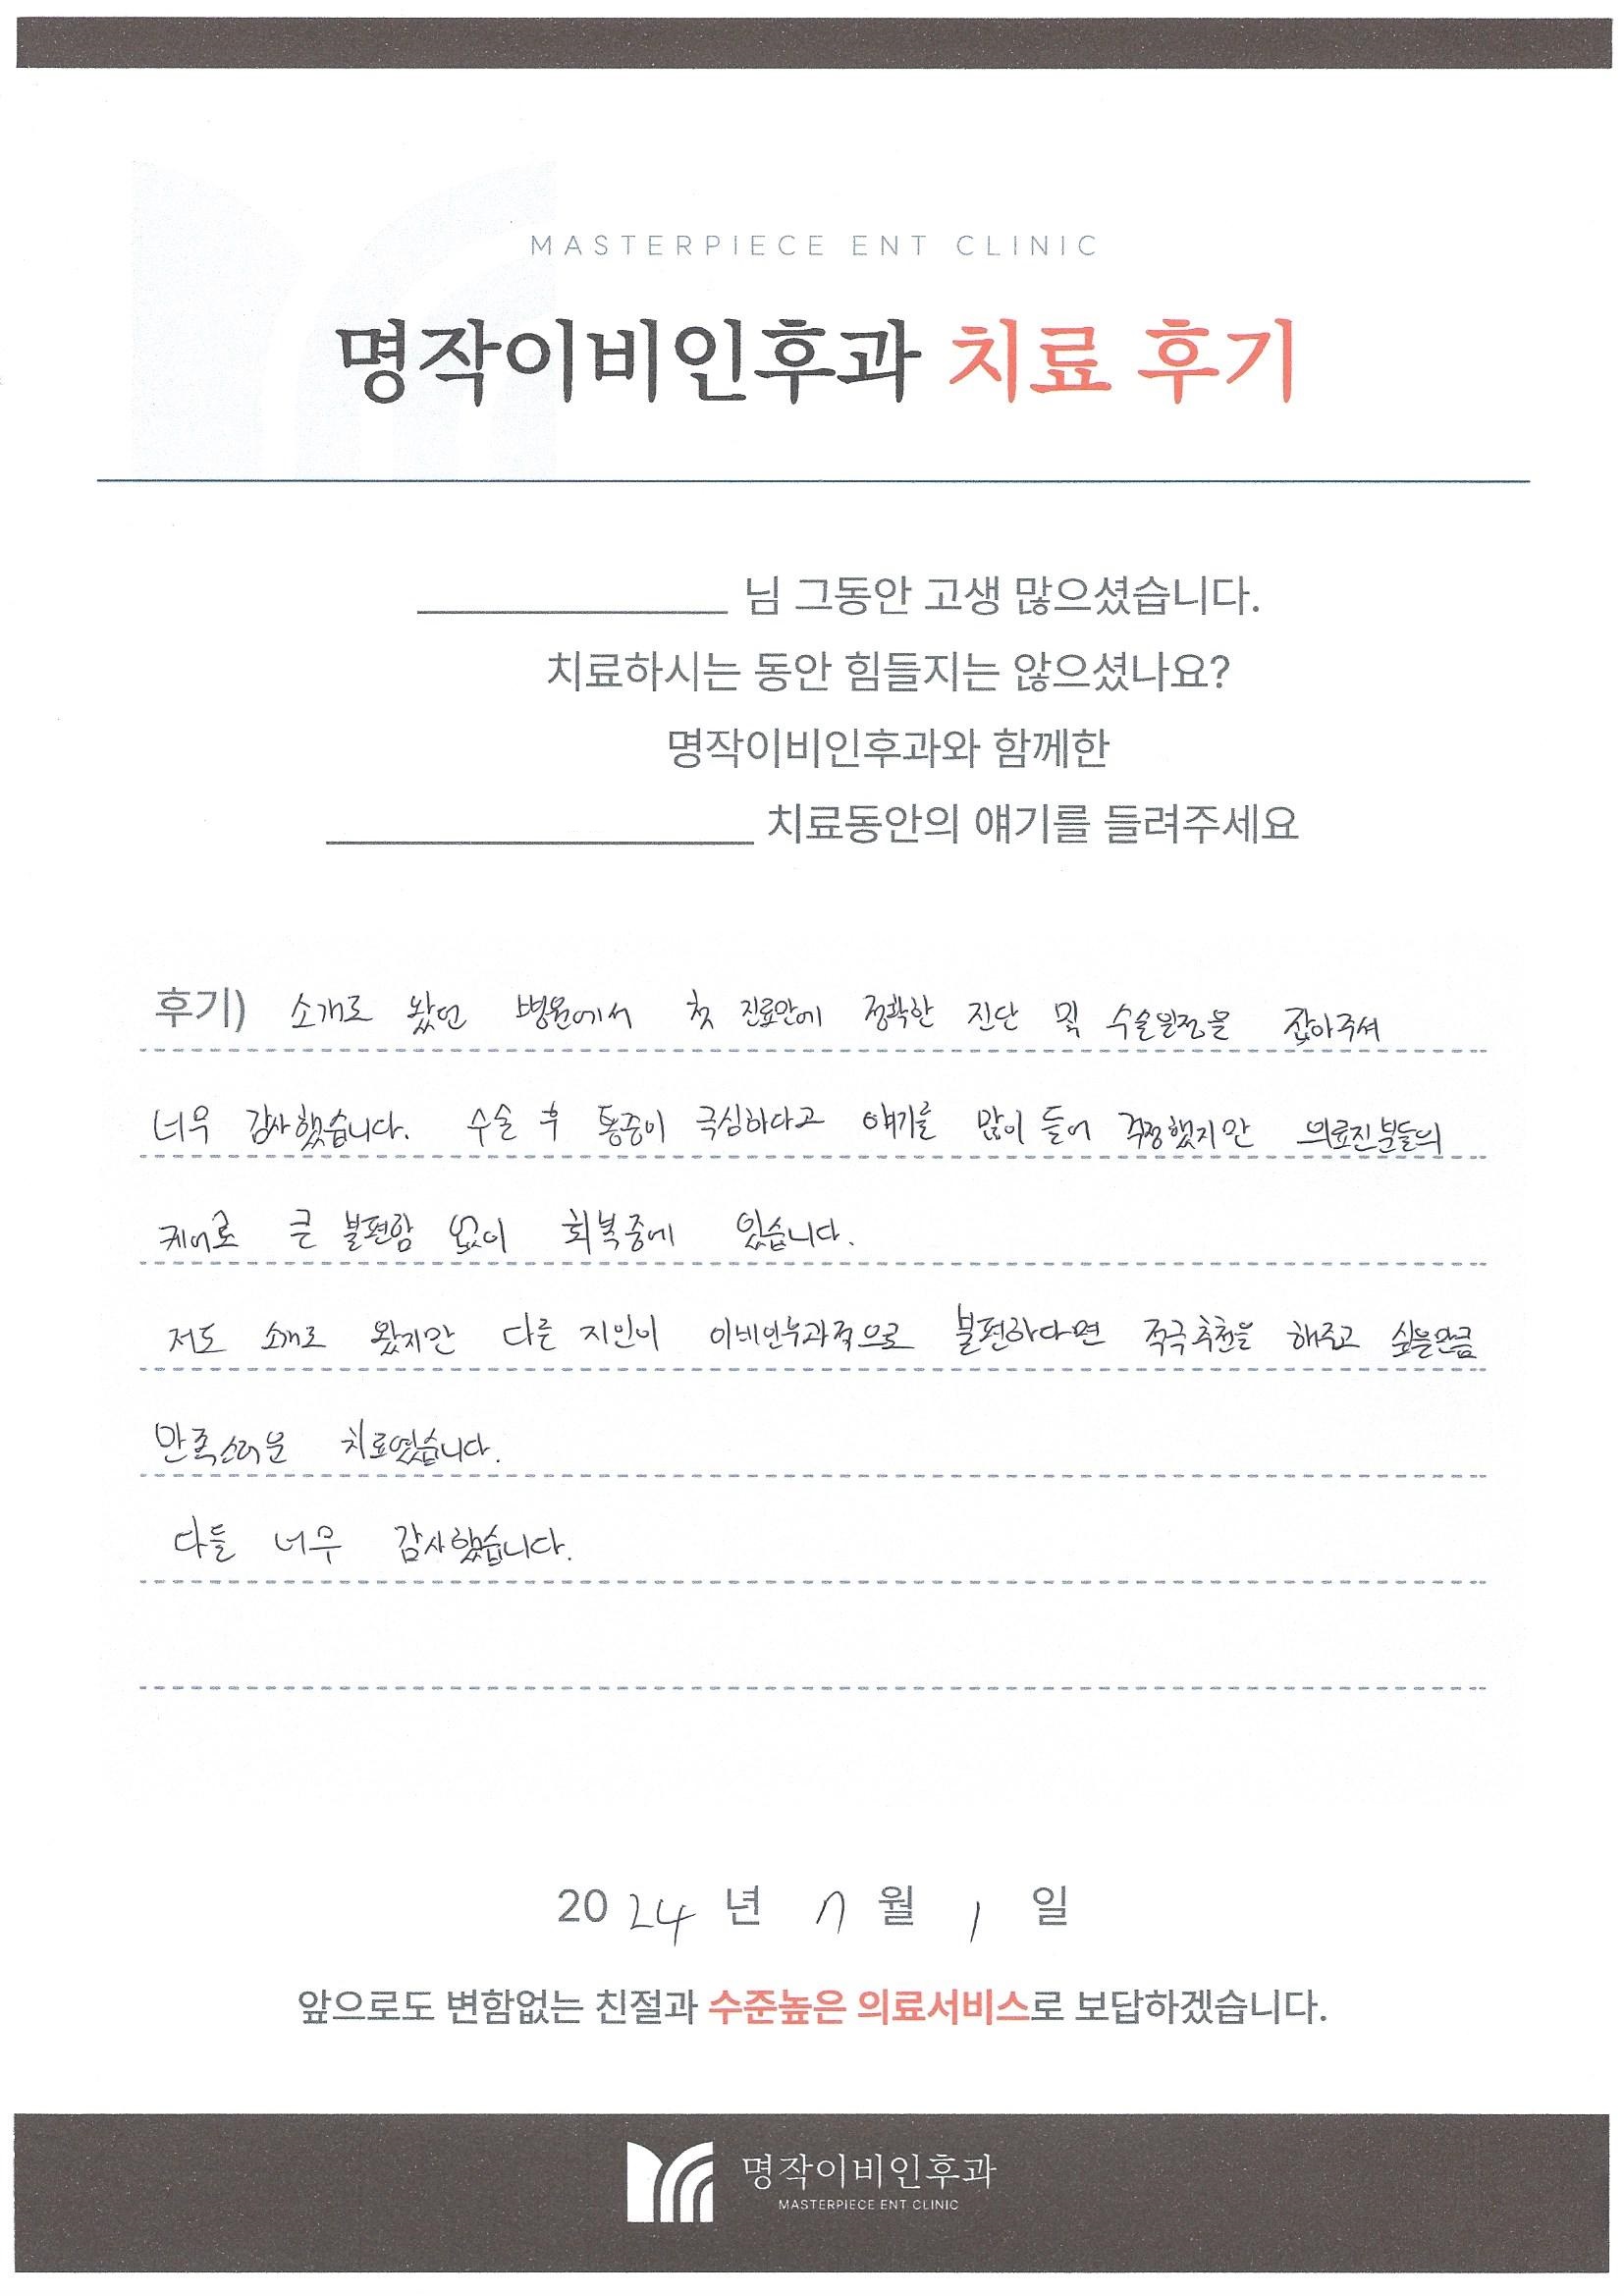 MASTERPIECE ENT CLINIC
명작이비인후과 치료 후기
님 그동안 고생 많으셨습니다.
치료하시는 동안 힘들지는 않으셨나요?
명작이비인후과와 함께한
치료동안의 얘기를 들려주세요
후기) 소개로 왔던 병원에서 첫 진료만에 정확한 진단 및 수술일정을 잡아주셔
너무 감사했습니다. 수술 후 통증이 극심하다고 얘기를 많이 들어 걱정했지만 의료진분들의
케어로 큰 불편함 없이 회복중에 있습니다.
저도 소개로 왔지만 다른 지인이 이비인후과적으로 불편하다면 적극추천을 해주고 싶을만큼
만족스러운 치료였습니다.
다들 너무 감사했습니다.
2024년 7월 1일
앞으로도 변함없는 친절과 수준높은 의료서비스로 보답하겠습니다.
명작이비인후과
MASTERPIECE ENT CLINIC